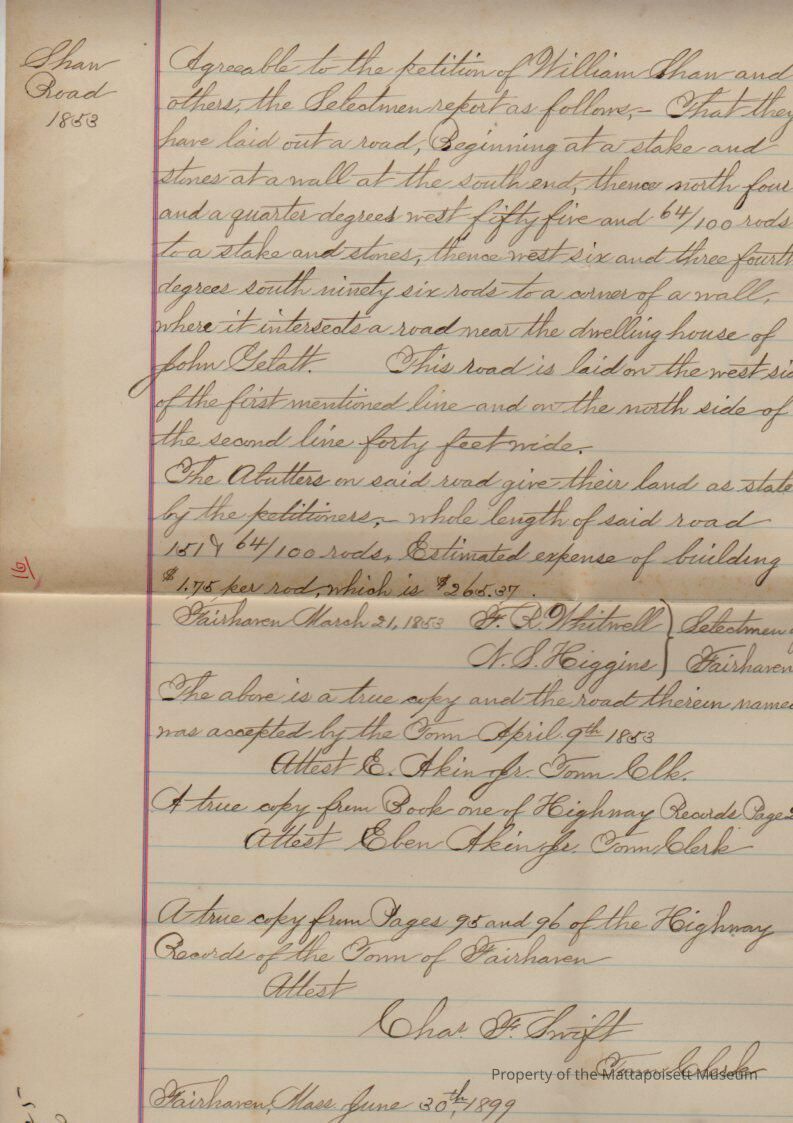 Shaw
Road
1853
Agreeable to the petition of William Shaw and
others, the Selectmen report as follows,- That they
have laid out a road, Beginning at a stake and
stones at a wall at the south end, thence north four
and a quarter degrees west fifty five and 64/100 rods
to a stake and stones, thence west six and three fourth
degrees south ninety six rods to a corner of a wall,
where it intersects a road near the dwelling house of
John Gelatt. This road is laid on the west sid
of the first mentioned line and on the north side of
the second line forty feet wide.
The Abutters on said road give their land as state
by the petitioners,- whole length of said road
151 & 64/100 rods, Estimated expense of building
$1.75 per rod, which is $265.37.
Fairhaven March 21, 1853 F. R. Whitwell } Selectmen
N. S. Higgins } Fairhaven
The above is a true copy and the road therein named
was accepted by the Town April 9th 1853
Attest E. Akin Jr. Town Clk.
A true copy from Book one of Highway Records Page
Attest Eben Akin Jr. Town Clerk
A true copy from Pages 95 and 96 of the Highway
Records of the Town of Fairhaven
Attest
Chas. F. Swift
Town Clerk
Property of the Mattapoisett Museum
Fairhaven, Mass June 30th, 1899
16